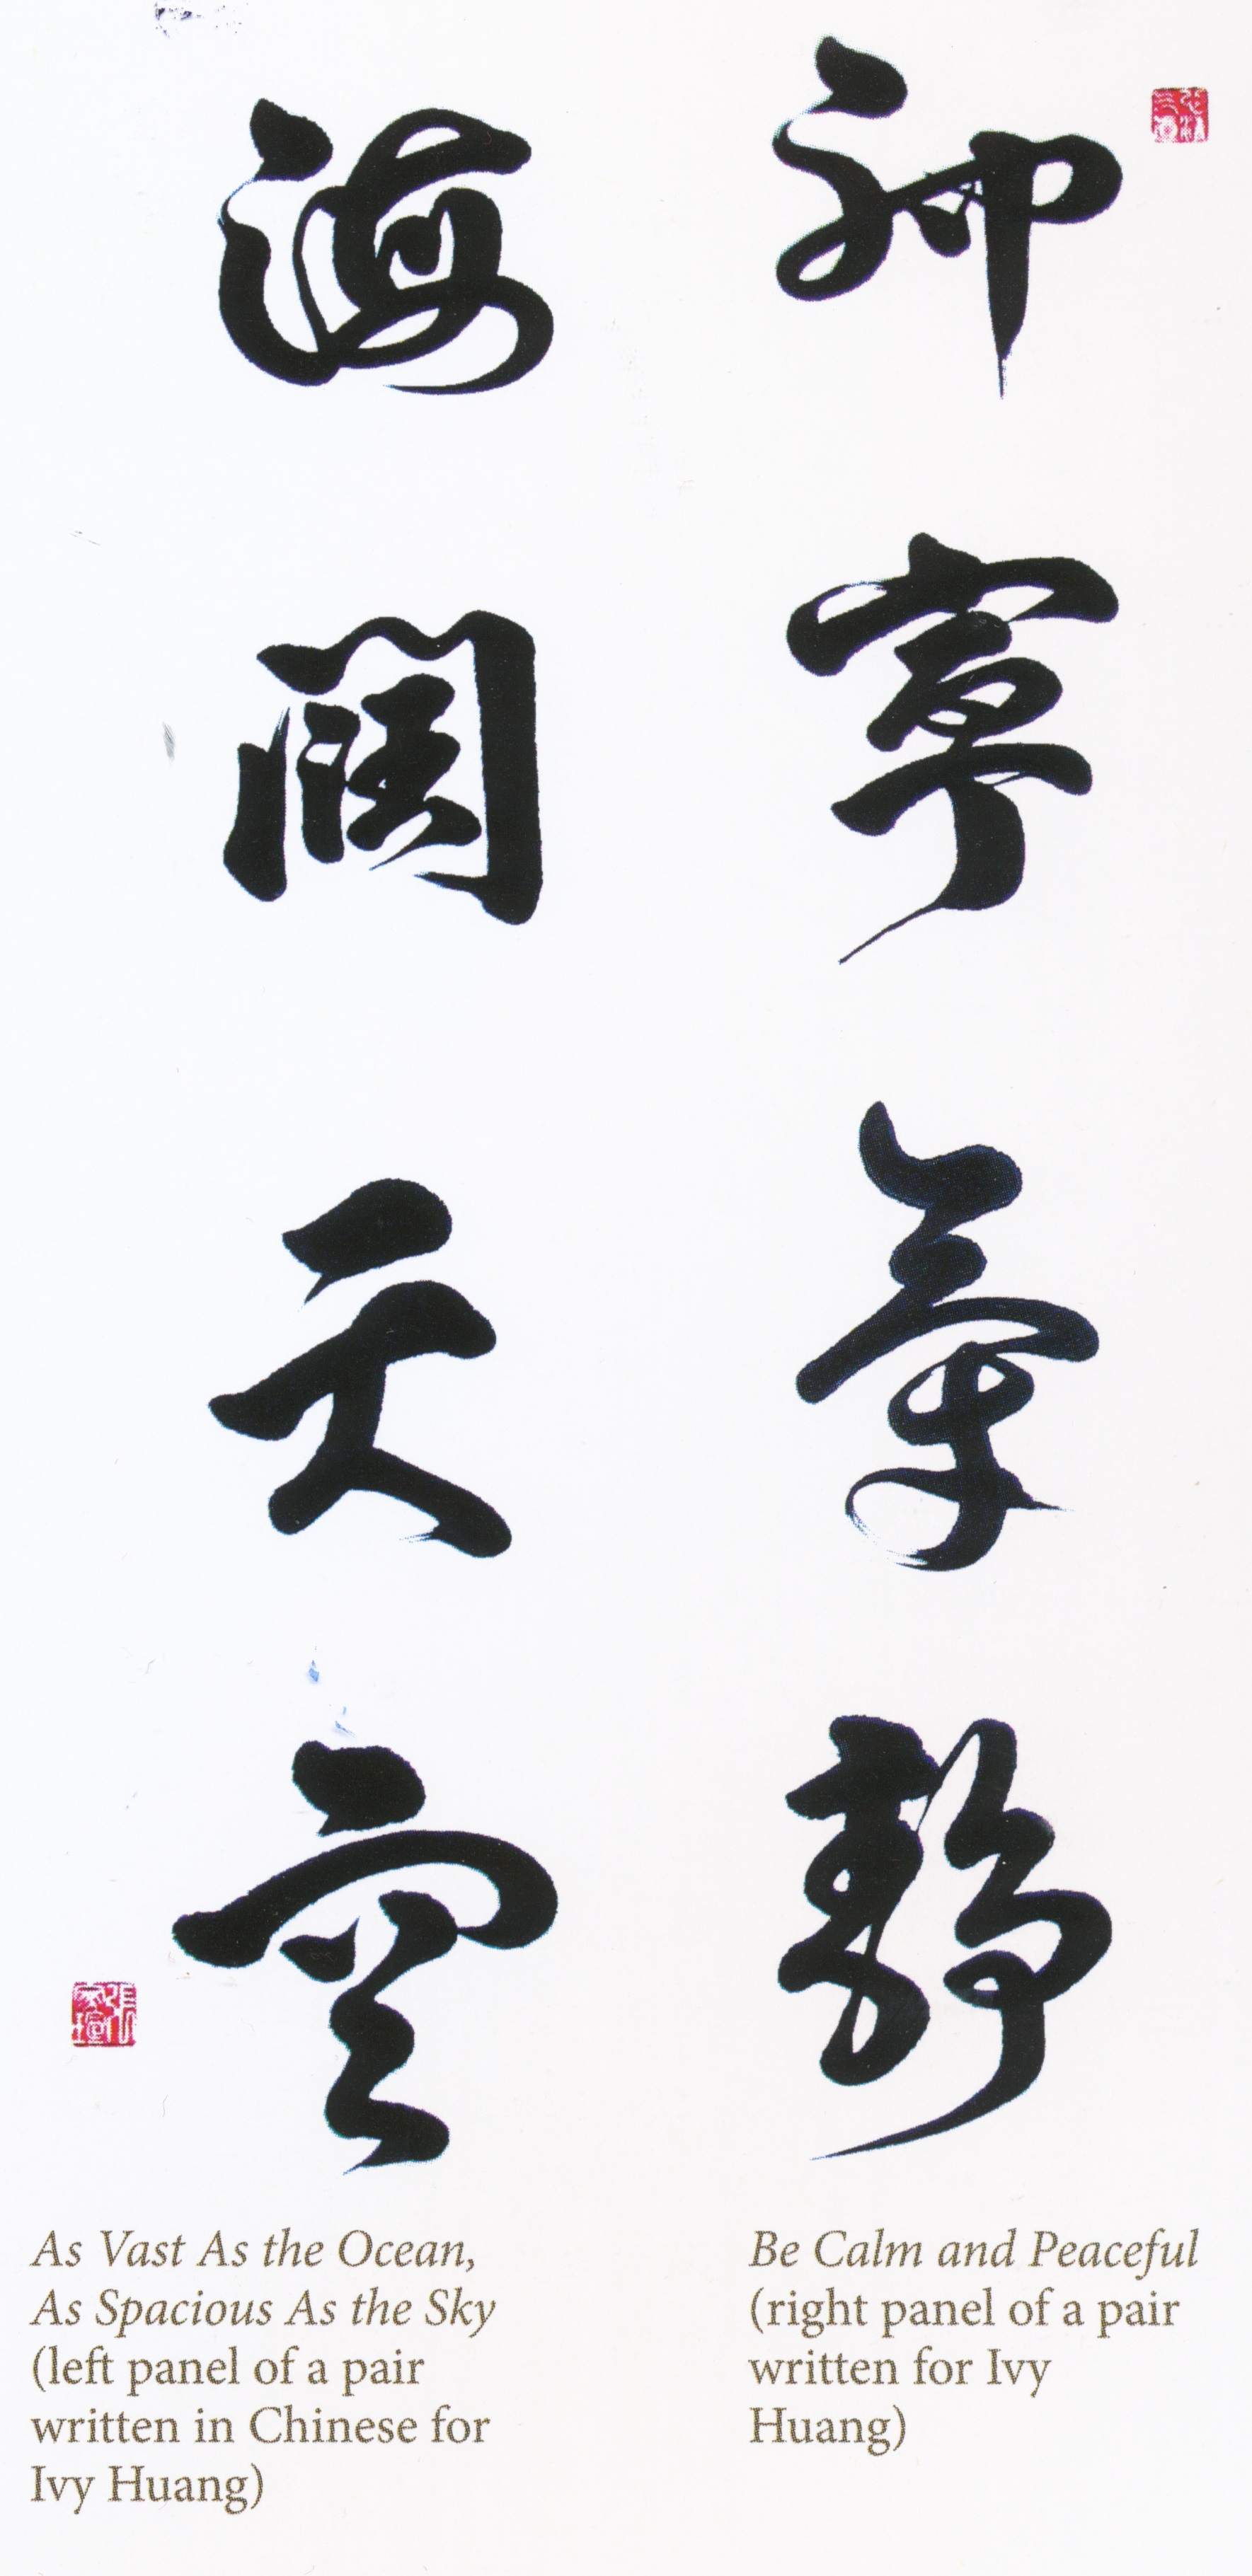 神寧氣靜
海闊天空
As Vast As the Ocean,
As Spacious As the Sky
(left panel of a pair
written in Chinese for
Ivy Huang)
Be Calm and Peaceful
(right panel of a pair
written for Ivy
Huang)